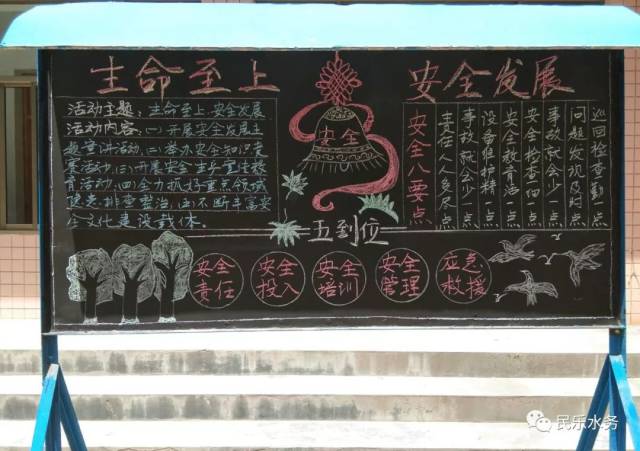 生命至上 安全发展
活动主题：生命至上，安全发展
活动内容：(一)开展安全发展主
题宣讲活动，(二)举办安全知识竞
赛活动，(三)开展安全生产宣传教
育活动，(四)全力抓好重点领域
隐患排查整治，(五)不断丰富安
全文化建设载体。
安全
安全八要点
巡回检查勤一点
问题发现及时一点
事故就会少一点
安全检查细一点
安全教育活一点
设备维护精一点
事故就会少一点
责任人人多尽一点
五到位
安全责任
安全投入
安全培训
安全管理
应急救援
民乐水务